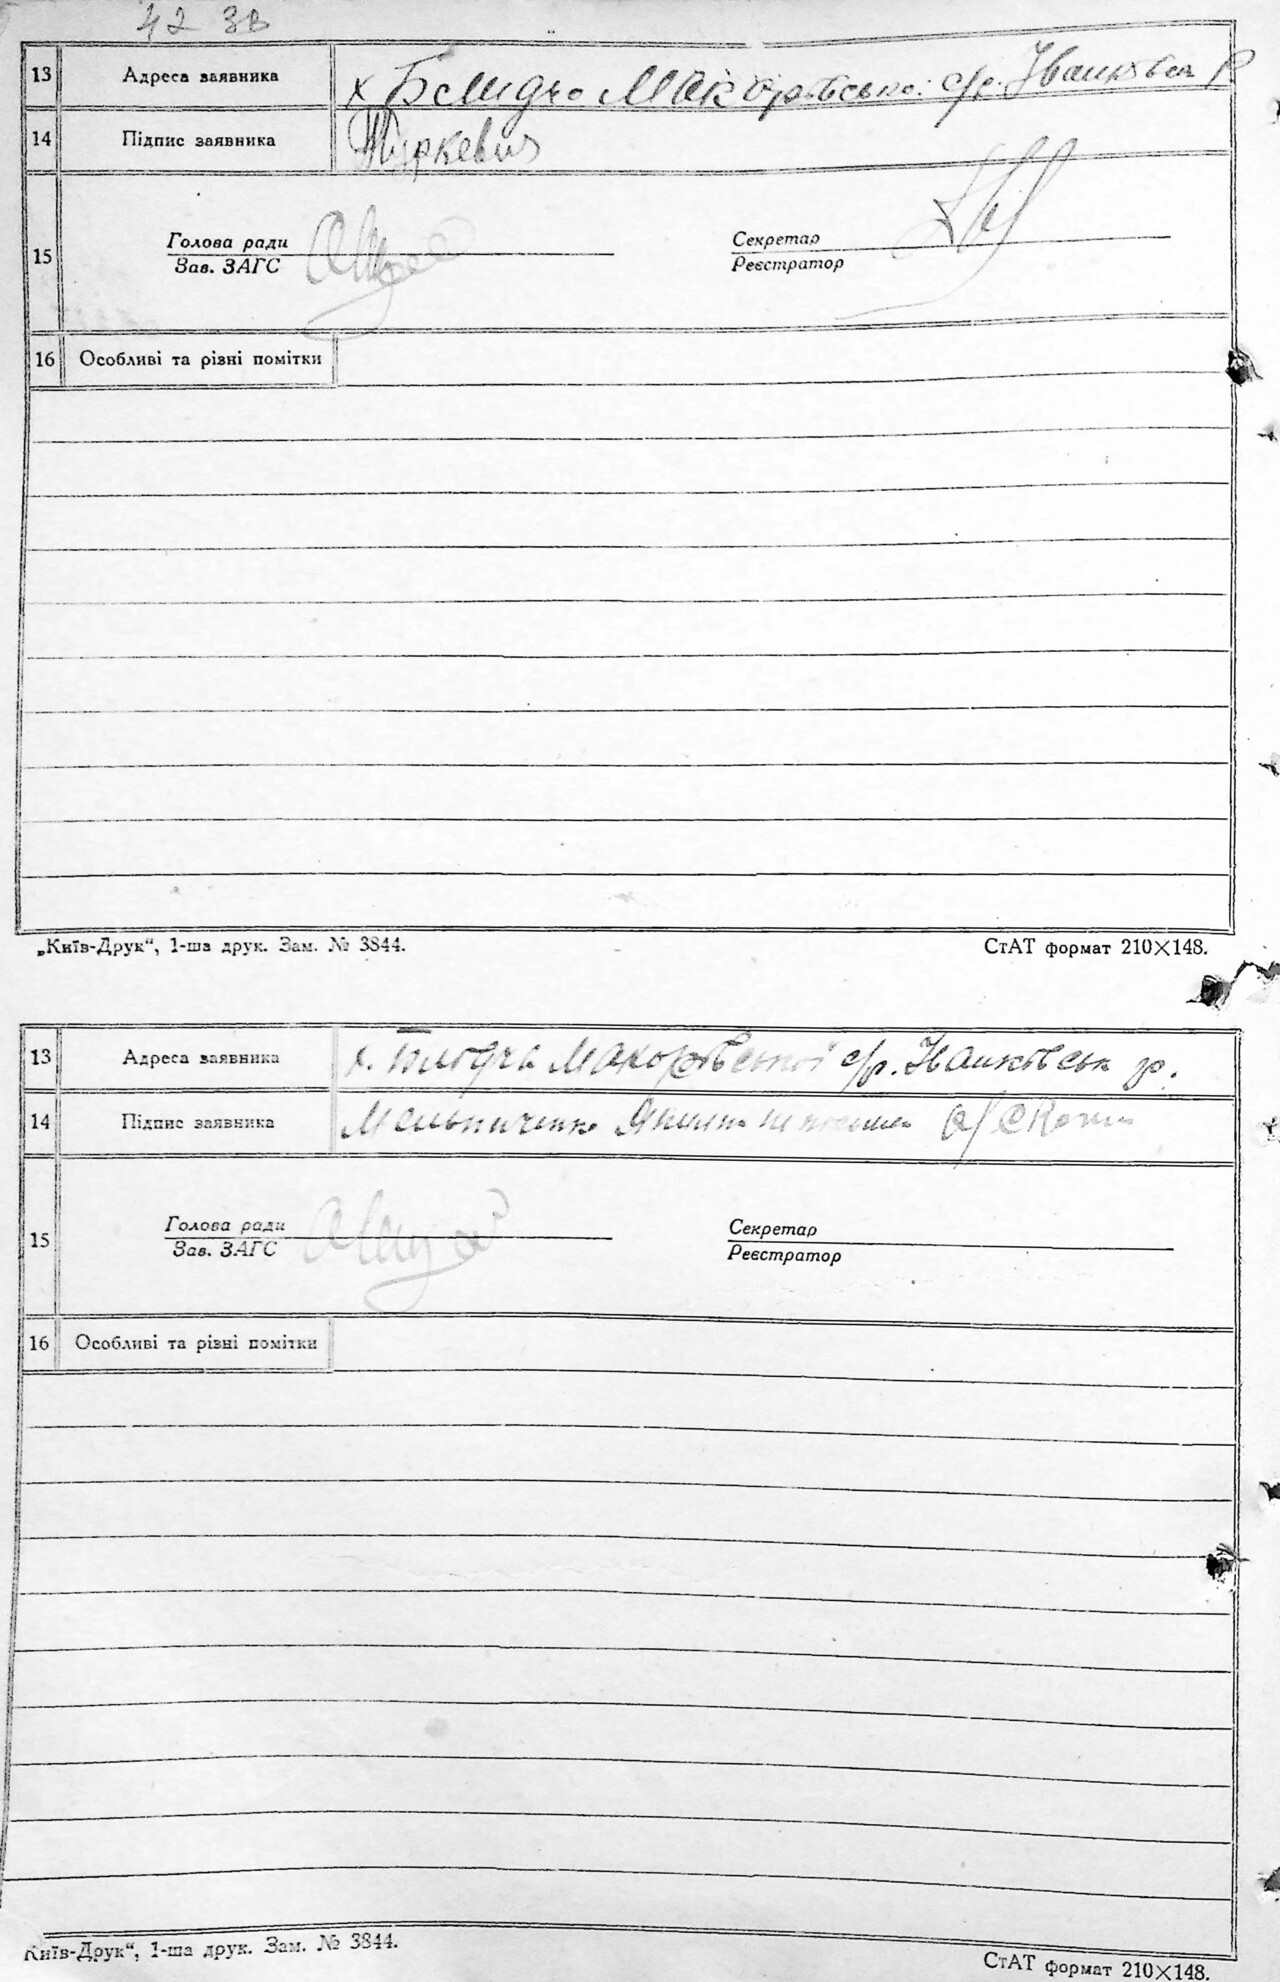 42 зв
13 Адреса заявника х Макорівської с/р. Іванків Р
14 Підпис заявника Туркевич
15 Голова ради Секретар
Зав. ЗАГС Реєстратор
16 Особливі та різні помітки
„Київ-Друк“, 1-ша друк. Зам. № 3844. СтАТ формат 210×148.
13 Адреса заявника х. Макорівської с/р. Іванківськ р.
14 Підпис заявника Мельниченко
15 Голова ради Секретар
Зав. ЗАГС Реєстратор
16 Особливі та різні помітки
Київ-Друк“, 1-ша друк. Зам. № 3844. СтАТ формат 210×148.